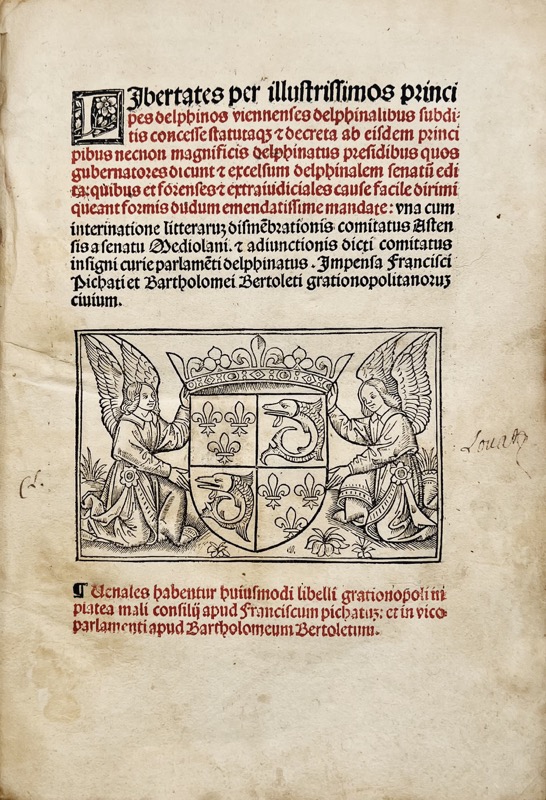 Libertates per illustrissimos princi
pes delphinos viennenses delphinalibus subdi-
tis concesse statutaqꝫ ⁊ decreta ab eisdem princi
pibus necnon magnificis delphinatus presidibus quos
gubernatores dicunt ⁊ excelsum delphinalem senatū edi
ta: quibus et forenses ⁊ extraiudiciales cause facile dirimi
queant formis dudum emendatissime mandate: vna cum
interinatione litteraruꝫ dismēbrationis comitatus Asten
sis a senatu Mediolani. ⁊ adiunctionis dicti comitatus
insigni curie parlamēti delphinatus. Impensa Francisci
Pichati et Bartholomei Bertoleti grationopolitanoruꝫ
ciuium.
¶ Uenales habentur huiusmodi libelli grationopoli in
platea mali consilij apud Franciscum pichatuꝫ: et in vico
parlamenti apud Bartholomeum Bertoletum.